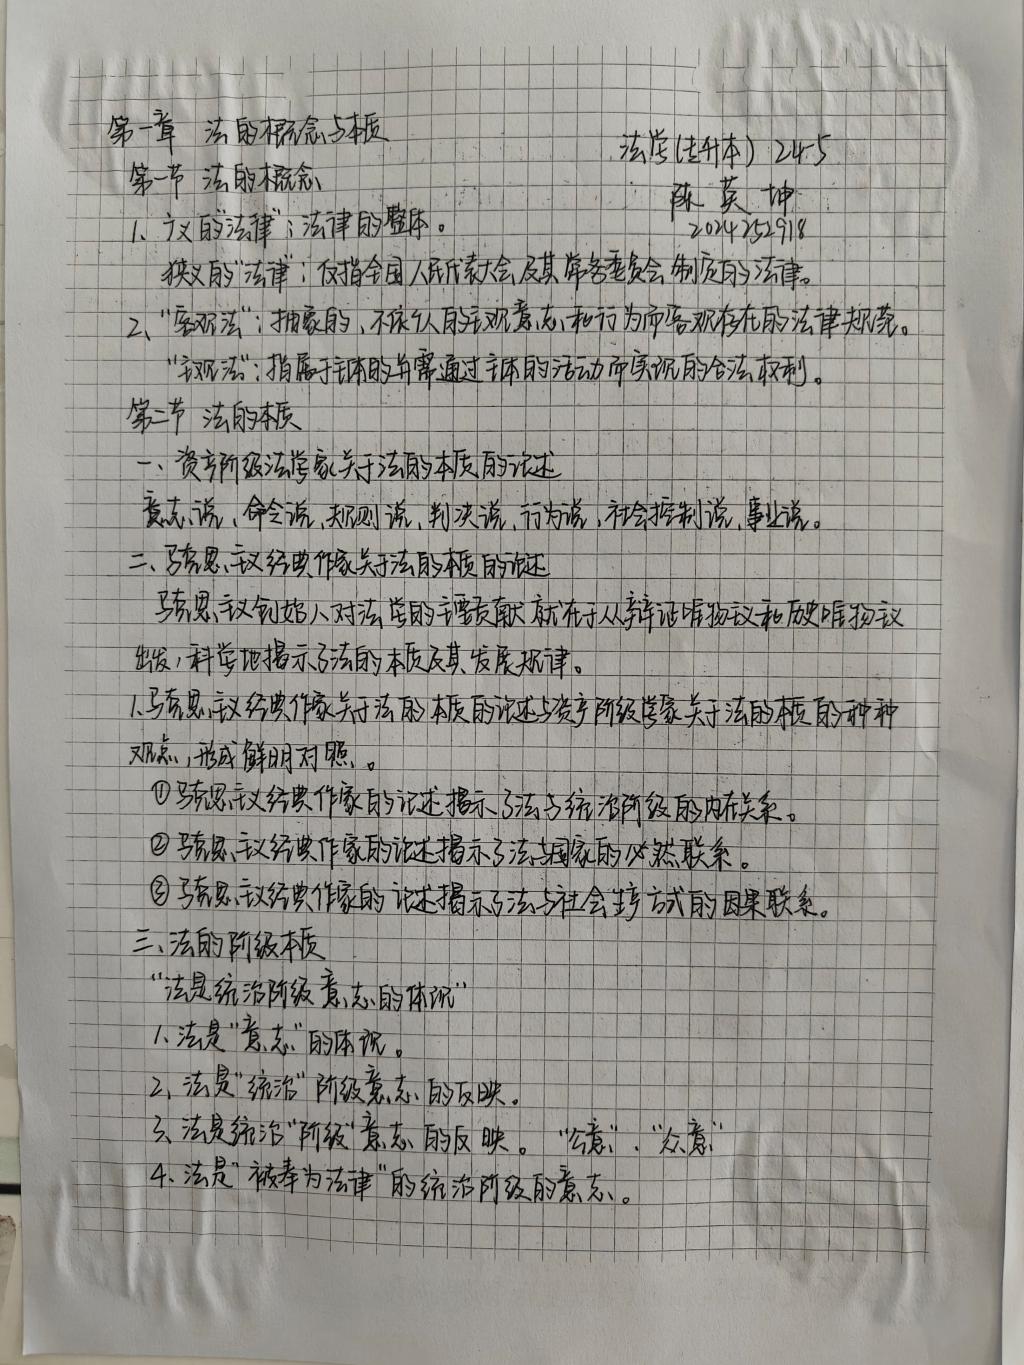 第一章 法的概念与本质
法学(专升本) 24-5
第一节 法的概念
陈英坤
2024252918
1、广义的"法律":法律的整体。
狭义的"法律":仅指全国人民代表大会及其常务委员会制定的法律。
2、"客观法":抽象的、不依个人的主观意志和行为而客观存在的法律规范。
"主观法":指属于主体的并需通过主体的活动而实现的合法权利。
第二节 法的本质
一、资产阶级法学家关于法的本质的论述
意志说、命令说、规则说、判决说、行为说、社会控制说、事业说。
二、马克思主义经典作家关于法的本质的论述
马克思主义创始人对法学的主要贡献就在于从辩证唯物主义和历史唯物主义
出发,科学地揭示了法的本质及其发展规律。
1、马克思主义经典作家关于法的本质的论述与资产阶级学家关于法的本质的种种
观点,形成鲜明对照。
①马克思主义经典作家的论述揭示了法与统治阶级的内在关系。
②马克思主义经典作家的论述揭示了法与国家的必然联系。
③马克思主义经典作家的论述揭示了法与社会生产方式的因果联系。
三、法的阶级本质
"法是统治阶级意志的体现"
1、法是"意志"的体现。
2、法是"统治"阶级意志的反映。
3、法是统治"阶级"意志的反映。"公意"、"众意"
4、法是"被奉为法律"的统治阶级的意志。